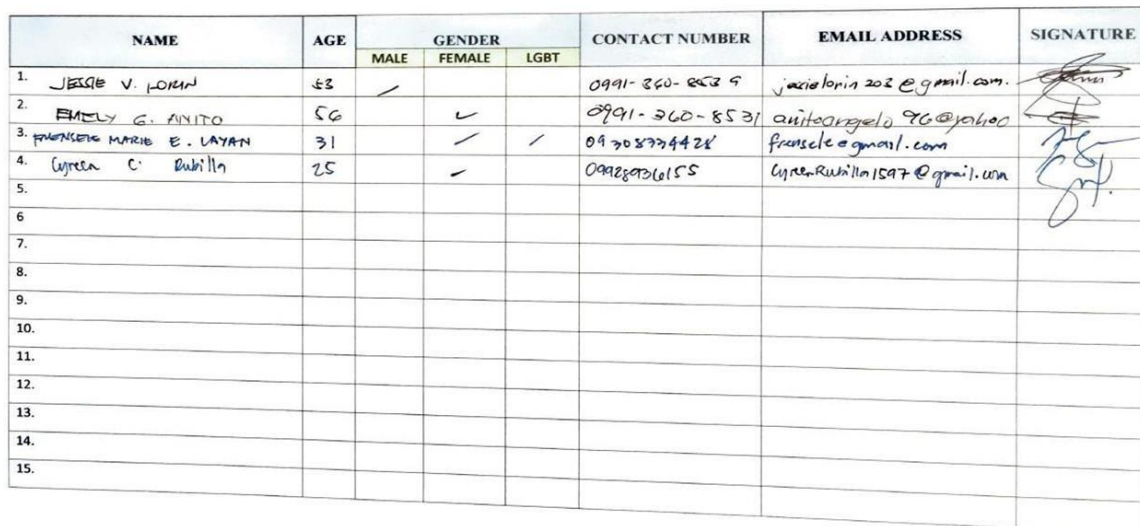 NAME AGE GENDER CONTACT NUMBER EMAIL ADDRESS SIGNATURE
MALE FEMALE LGBT
1. JESSIE V. LORIN 53 / 0991-360-8539 jessielorin203@gmail.com.
2. EMELY G. ANITO 56 ✓ 0991-360-8531 anitoangelo96@yahoo
3. FRENSELE MARIE E. LAYAN 31 / / 09308334428 frensele@gmail.com
4. Cyreen C. Rubilla 25 ✓ 09928936155 CyreenRubilla1597@gmail.com
5.
6
7.
8.
9.
10.
11.
12.
13.
14.
15.